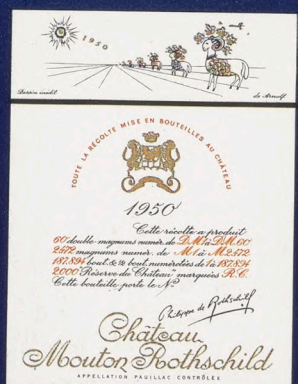 1950
arnulf.
Dessin inédit
de Arnulf
TOUTE LA RÉCOLTE MISE EN BOUTEILLES AU CHÂTEAU
1950
Cette récolte a produit
60 double-magnums numér. de D.M.1 à D.M.60
2572 magnums numér. de M1 à M2572
187.894 bout. & ½ bout. numérotées de 1 à 187.894
2000 "Réserve du Château" marquées R.C.
Cette bouteille porte le Nº
Philippe de Rothschild
Château
Mouton Rothschild
APPELLATION PAUILLAC CONTRÔLÉE